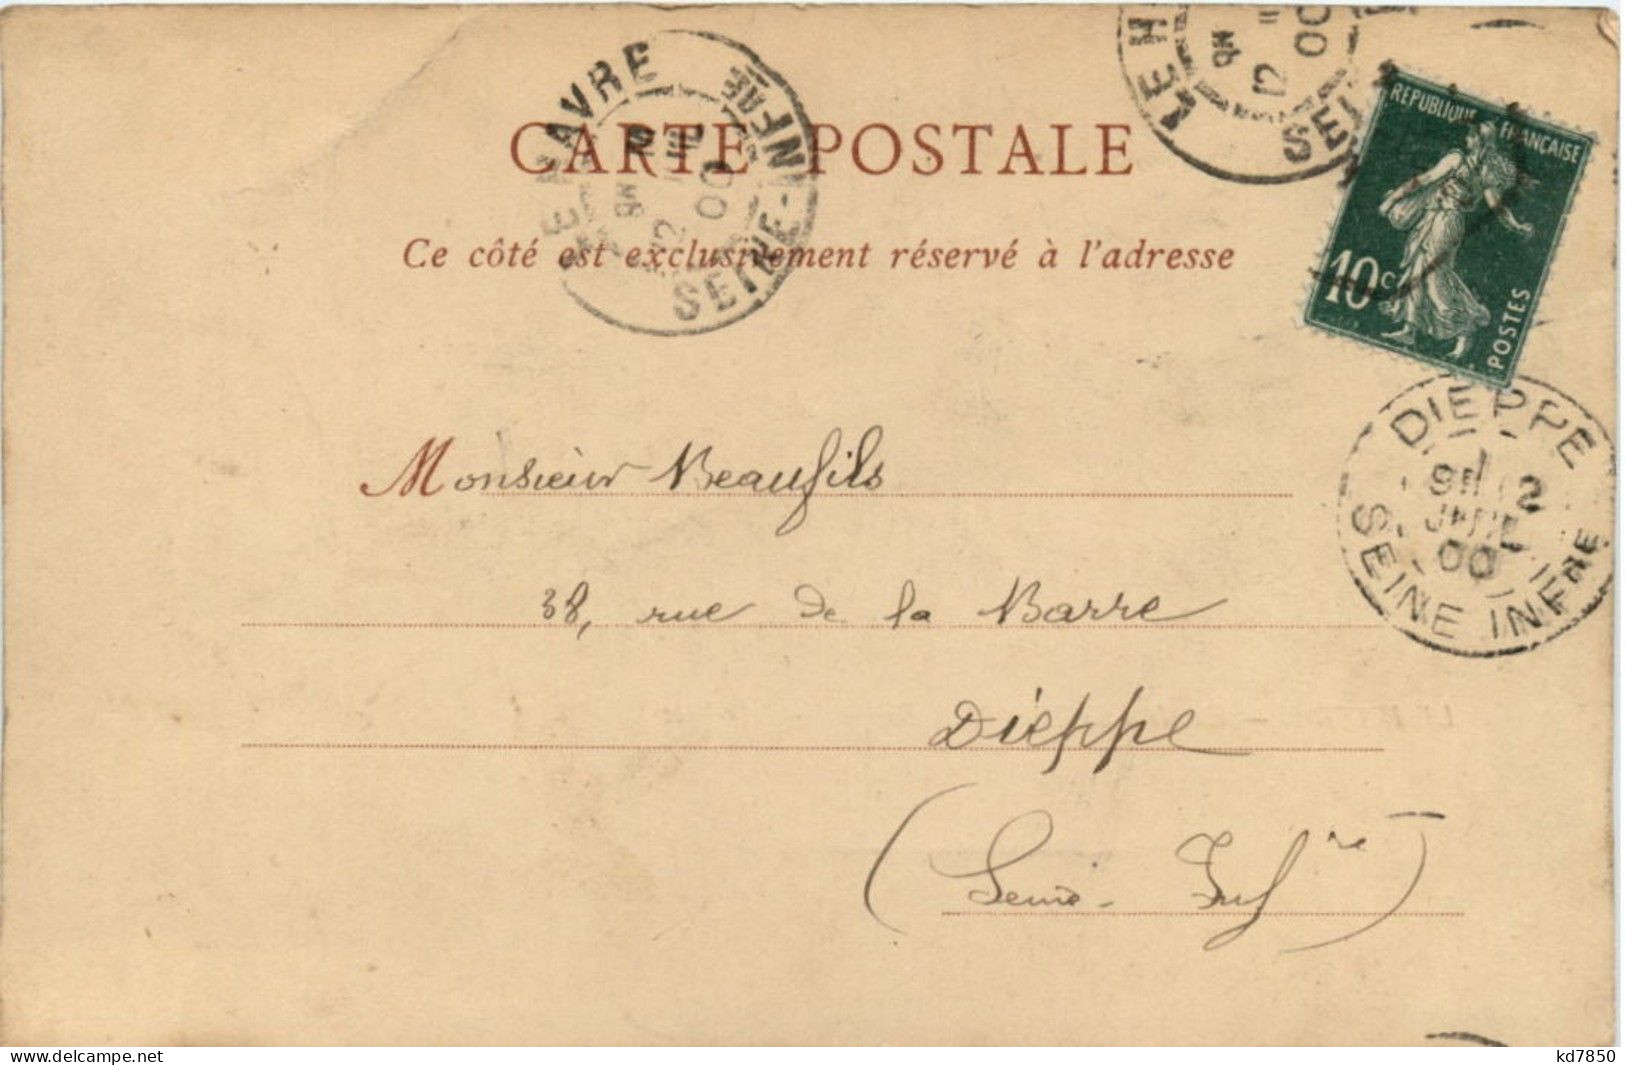 CARTE POSTALE
Ce côté est exclusivement réservé à l'adresse
LE HAVRE
12
00
SEINE-INFRE
LE H
12
00
SEI
REPUBLIQUE FRANÇAISE
10c
POSTES
DIEPPE
12
00
SEINE INFRE
Monsieur Beaufils
38, rue de la Barre
Dieppe
(Seine-Infre)
www.delcampe.net
kd7850